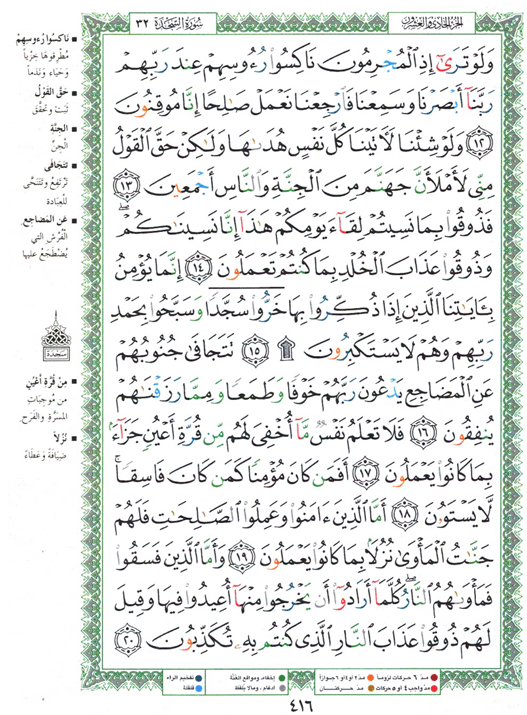 الجزء الحادي والعشرون
سورة السجدة ٣٢
وَلَوْ تَرَىٰٓ إِذِ ٱلْمُجْرِمُونَ نَاكِسُوا۟ رُءُوسِهِمْ عِندَ رَبِّهِمْ
رَبَّنَآ أَبْصَرْنَا وَسَمِعْنَا فَٱرْجِعْنَا نَعْمَلْ صَـٰلِحًا إِنَّا مُوقِنُونَ
١٢ وَلَوْ شِئْنَا لَـَٔاتَيْنَا كُلَّ نَفْسٍ هُدَىٰهَا وَلَـٰكِنْ حَقَّ ٱلْقَوْلُ
مِنِّى لَأَمْلَأَنَّ جَهَنَّمَ مِنَ ٱلْجِنَّةِ وَٱلنَّاسِ أَجْمَعِينَ ١٣
فَذُوقُوا۟ بِمَا نَسِيتُمْ لِقَآءَ يَوْمِكُمْ هَـٰذَآ إِنَّا نَسِينَـٰكُمْ ۖ
وَذُوقُوا۟ عَذَابَ ٱلْخُلْدِ بِمَا كُنتُمْ تَعْمَلُونَ ١٤ إِنَّمَا يُؤْمِنُ
بِـَٔايَـٰتِنَا ٱلَّذِينَ إِذَا ذُكِّرُوا۟ بِهَا خَرُّوا۟ سُجَّدًا وَسَبَّحُوا۟ بِحَمْدِ
رَبِّهِمْ وَهُمْ لَا يَسْتَكْبِرُونَ ١٥ ۩ تَتَجَافَىٰ جُنُوبُهُمْ
عَنِ ٱلْمَضَاجِعِ يَدْعُونَ رَبَّهُمْ خَوْفًا وَطَمَعًا وَمِمَّا رَزَقْنَـٰهُمْ
يُنفِقُونَ ١٦ فَلَا تَعْلَمُ نَفْسٌ مَّآ أُخْفِىَ لَهُم مِّن قُرَّةِ أَعْيُنٍ جَزَآءًۢ
بِمَا كَانُوا۟ يَعْمَلُونَ ١٧ أَفَمَن كَانَ مُؤْمِنًا كَمَن كَانَ فَاسِقًا ۚ
لَّا يَسْتَوُۥنَ ١٨ أَمَّا ٱلَّذِينَ ءَامَنُوا۟ وَعَمِلُوا۟ ٱلصَّـٰلِحَـٰتِ فَلَهُمْ
جَنَّـٰتُ ٱلْمَأْوَىٰ نُزُلًۢا بِمَا كَانُوا۟ يَعْمَلُونَ ١٩ وَأَمَّا ٱلَّذِينَ فَسَقُوا۟
فَمَأْوَىٰهُمُ ٱلنَّارُ ۖ كُلَّمَآ أَرَادُوٓا۟ أَن يَخْرُجُوا۟ مِنْهَآ أُعِيدُوا۟ فِيهَا وَقِيلَ
لَهُمْ ذُوقُوا۟ عَذَابَ ٱلنَّارِ ٱلَّذِى كُنتُم بِهِۦ تُكَذِّبُونَ ٢٠
ناكسوا رءوسهم
مطرقوها خزيا
وحياء وندما
حق القول
ثبت وتحقق
الجنة
الجن
تتجافى
ترتفع وتتنحى
للعبادة
عن المضاجع
الفرش التي
يضطجع عليها
سجدة
من قرة أعين
من موجبات
المسرة والفرح
نزلا
ضيافة وعطاء
مد ٦ حركات لزوما
مد ٢ او ٤ او ٦ جوازا
إخفاء، ومواقع الغنة
تفخيم الراء
مد واجب ٤ او ٥ حركات
مد حركتان
ادغام، ومالا يلفظ
قلقلة
٤١٦